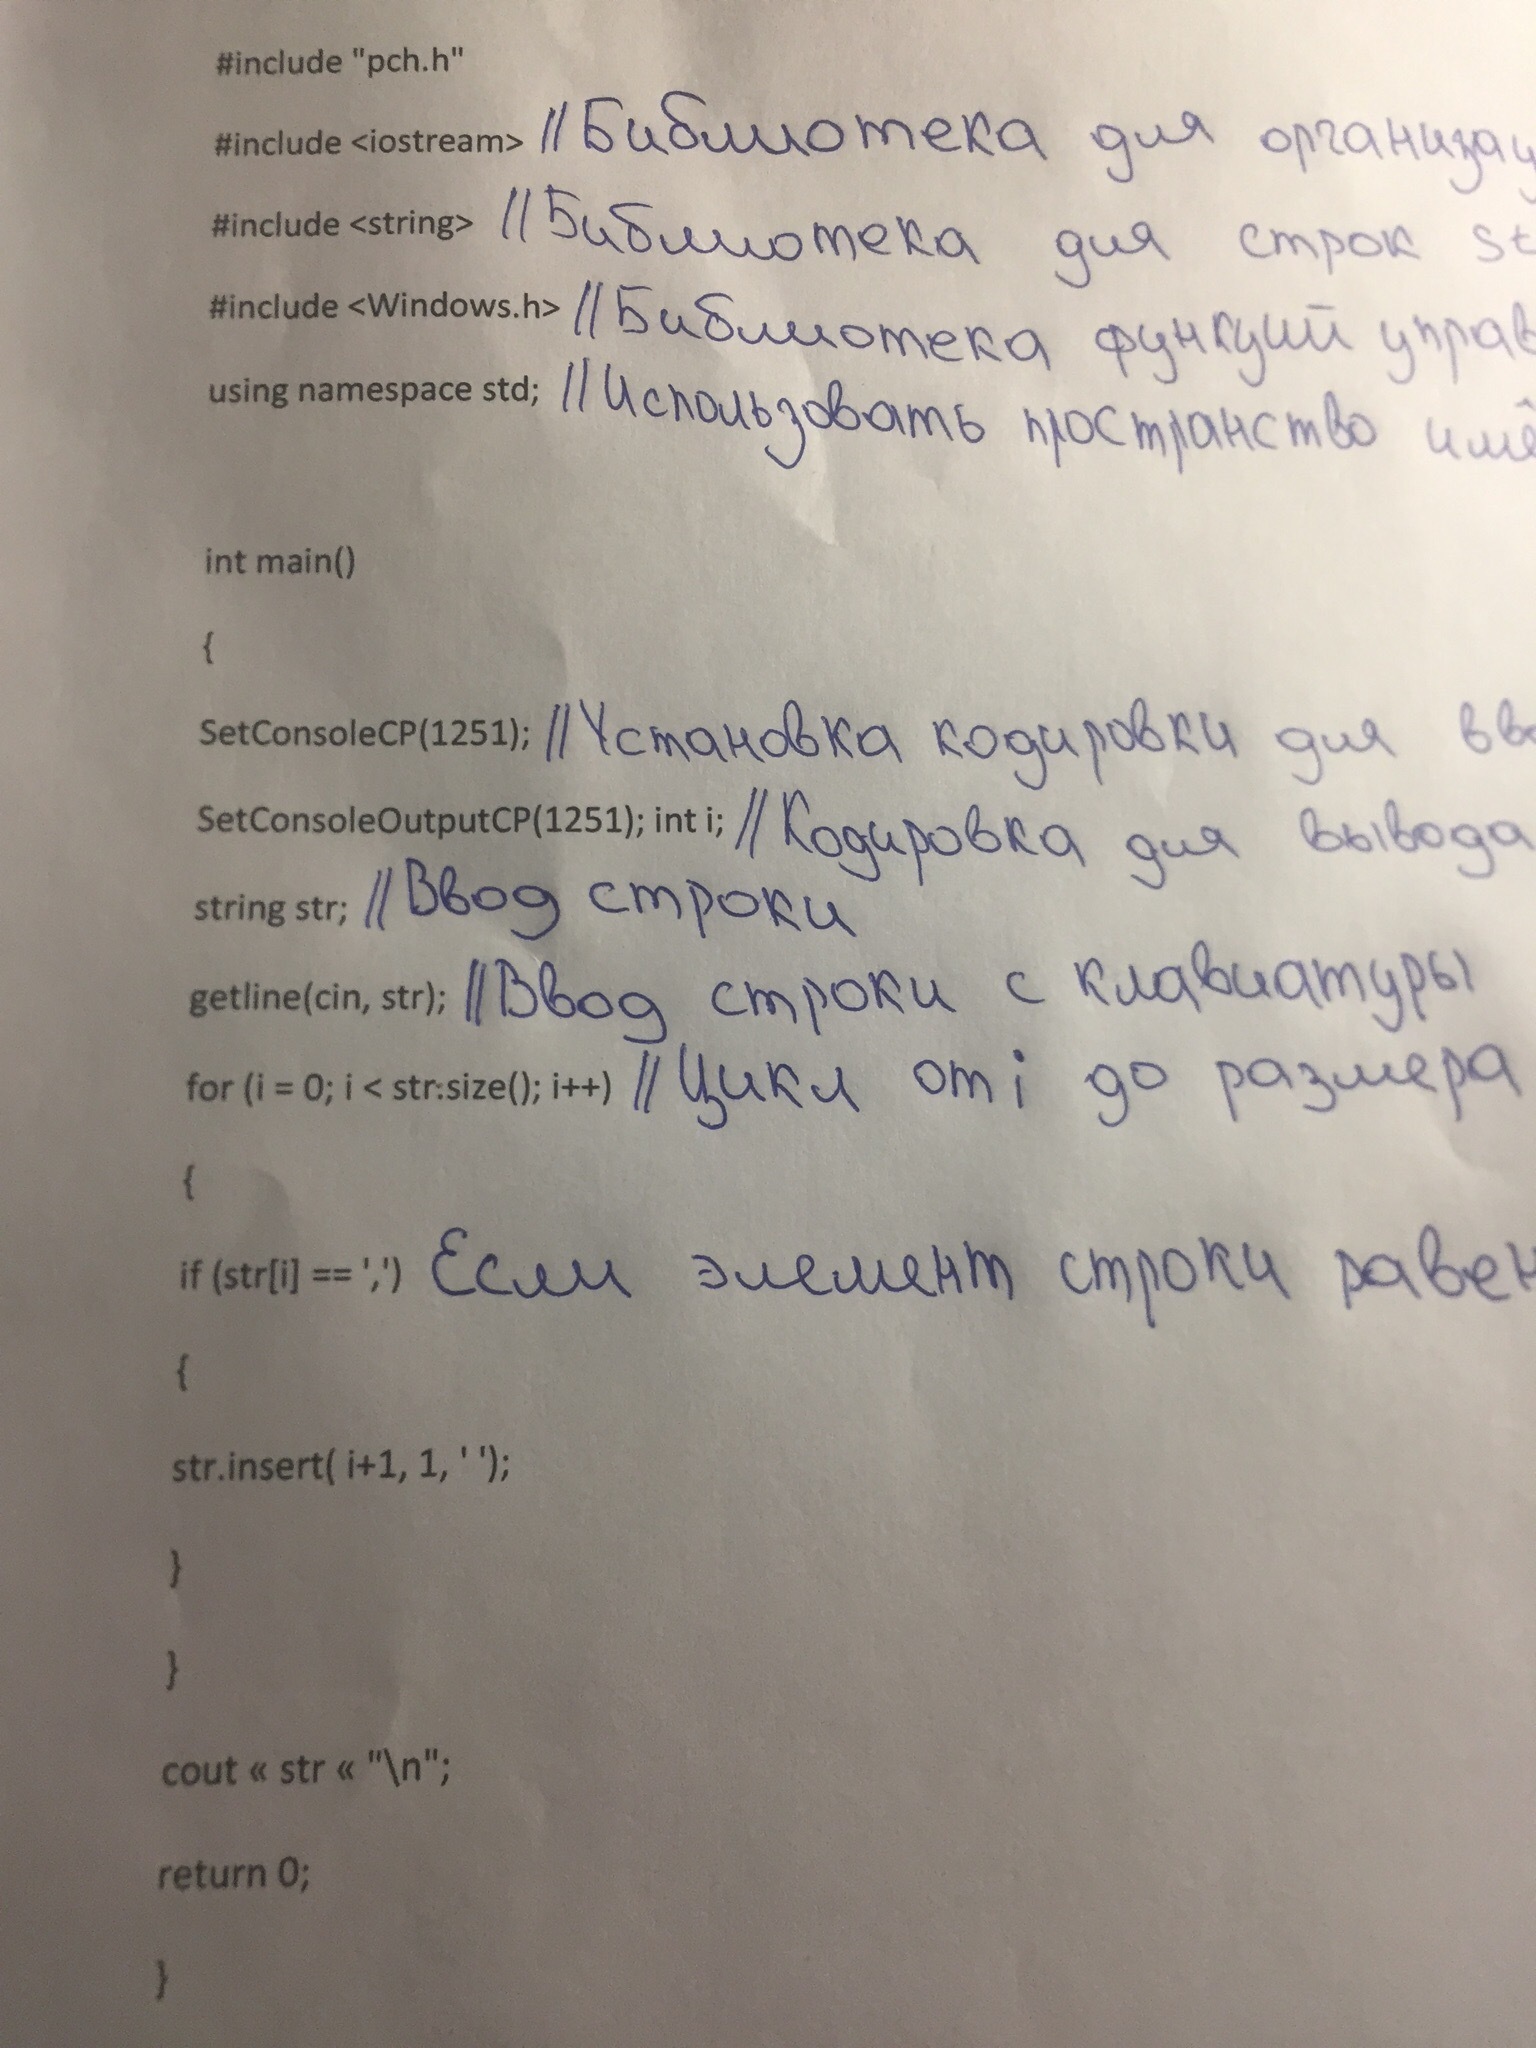 #include "pch.h"
#include <iostream> //Библиотека для организац
#include <string> //Библиотека для строк st
#include <Windows.h> //Библиотека функций управ
using namespace std; //Использовать пространство имё
int main()
{
SetConsoleCP(1251); //Установка кодировки для вво
SetConsoleOutputCP(1251); int i; //Кодировка для вывода
string str; //Ввод строки
getline(cin, str); //Ввод строки с клавиатуры
for (i = 0; i < str.size(); i++) //Цикл от i до размера
{
if (str[i] == ',') Если элемент строки равен
{
str.insert( i+1, 1, ' ');
}
}
cout « str « "\n";
return 0;
}